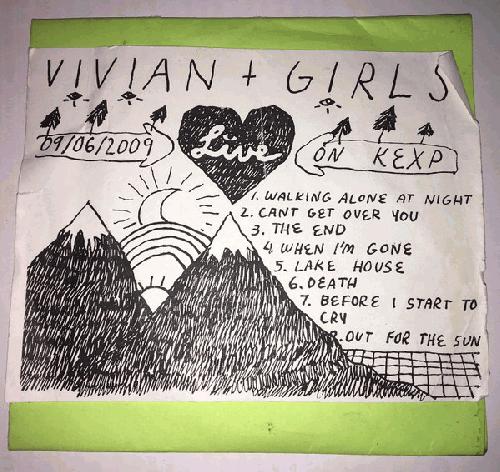 VIVIAN + GIRLS
09/06/2009
Live
ON KEXP
1. WALKING ALONE AT NIGHT
2. CANT GET OVER YOU
3. THE END
4. WHEN I'M GONE
5. LAKE HOUSE
6. DEATH
7. BEFORE I START TO
CRY
8. OUT FOR THE SUN